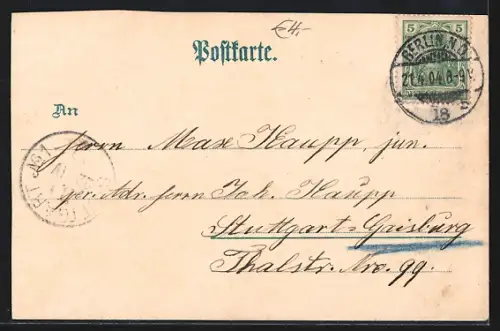 €4,-
Postkarte.
5 5
BERLIN N.
21.4.04.8-9V.
18
An
Herrn Max Haupp, jun.
per. Adr. Herrn Joh. Haupp
Stuttgart-Gaisburg
Thalstr. Nro. 99.